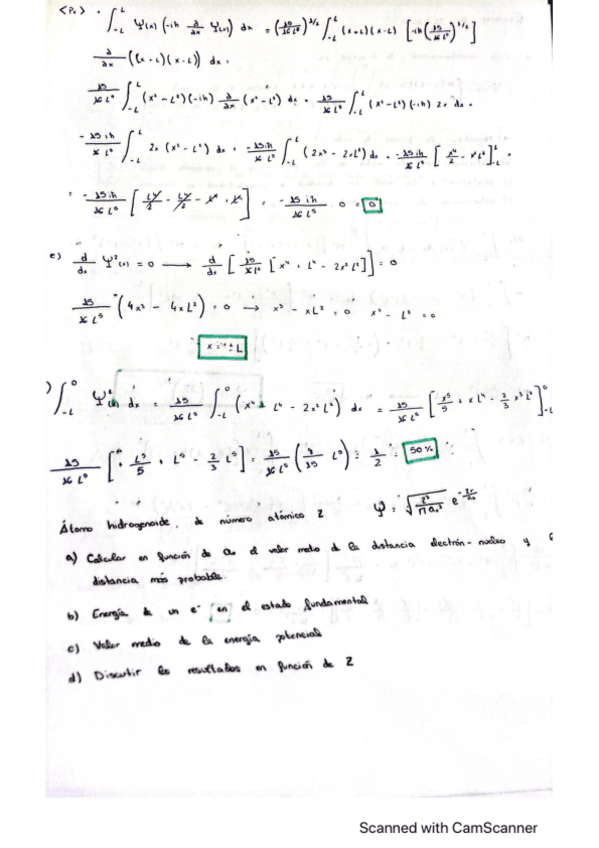 <Px> = ∫_{-L}^{L} Ψ(x) (-iħ ∂/∂x Ψ(x)) dx = (15/16L⁵)^{1/2} ∫_{-L}^{L} (x+L)(x-L) [-iħ (15/16L⁵)^{1/2}]
∂/∂x ((x+L)(x-L)) dx =
15/16L⁵ ∫_{-L}^{L} (x²-L²)(-iħ) ∂/∂x (x²-L²) dx = 15/16L⁵ ∫_{-L}^{L} (x²-L²)(-iħ) 2x dx =
-15iħ/16L⁵ ∫_{-L}^{L} 2x (x²-L²) dx = -15iħ/16L⁵ ∫_{-L}^{L} (2x³-2xL²) dx = -15iħ/16L⁵ [x⁴/2 - x²L²]_{-L}^{L} =
= -15iħ/16L⁵ [L⁴/2 - L⁴/2 - L⁴ + L⁴] = -15iħ/16L⁵ · 0 = 0
e) d/dx Ψ²(x) = 0 → d/dx [15/16L⁵ [x⁴ + L⁴ - 2x²L²]] = 0
15/16L⁵ (4x³ - 4xL²) = 0 → x³ - xL² = 0 x² - L² = 0
x = ± L
) ∫_{-L}^{0} Ψ²(x) dx = 15/16L⁵ ∫_{-L}^{0} (x⁴ + L⁴ - 2x²L²) dx = 15/16L⁵ [x⁵/5 + xL⁴ - 2/3 x³L²]_{-L}^{0}
15/16L⁵ [+ L⁵/5 + L⁵ - 2/3 L⁵] = 15/16L⁵ (8/15 L⁵) = 1/2 = 50%
Átomo hidrogenoide, de número atómico Z Ψ = √(Z³/πa₀³) e^{-Zr/a₀}
a) Calcular en función de a₀ el valor medio de la distancia electrón-núcleo y
distancia más probable.
b) Energía de un e⁻ en el estado fundamental
c) Valor medio de la energía potencial
d) Discutir los resultados en función de Z
Scanned with CamScanner